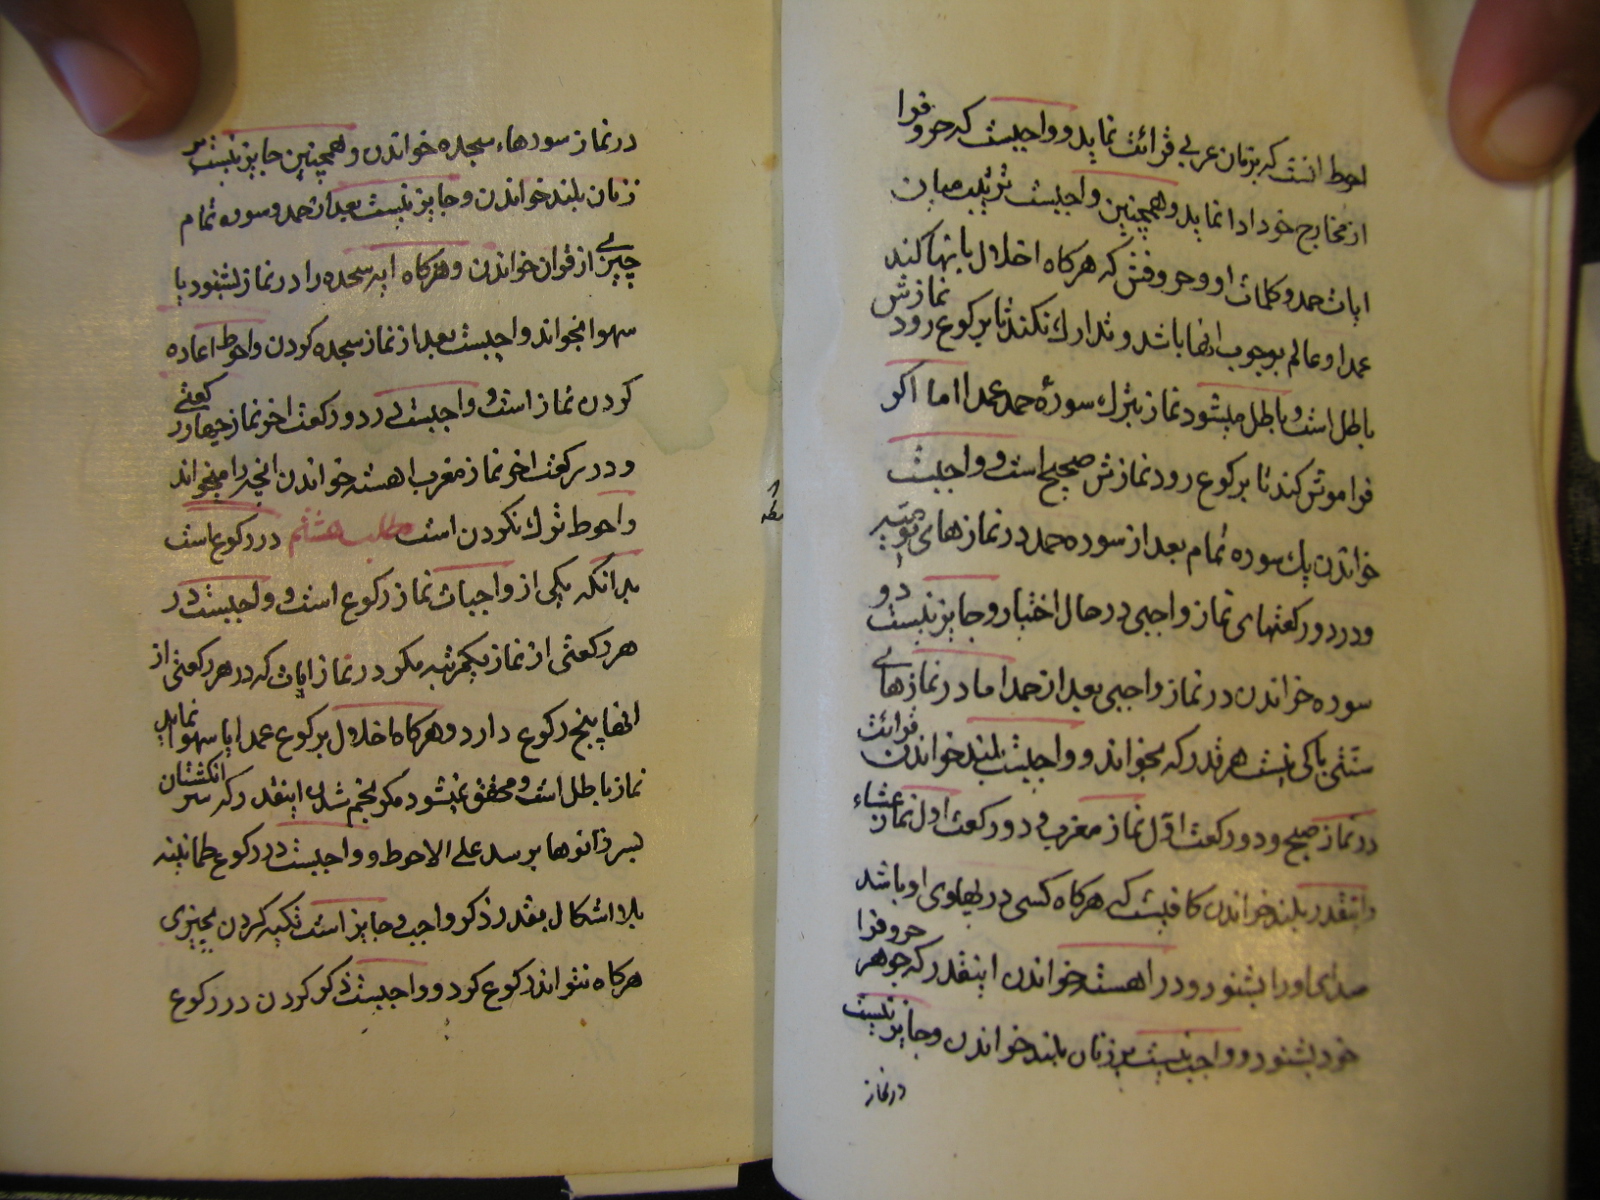 احوط انست که بزبان عربی قرائت نماید و واجبست که حروفرا
از مخارج خود ادا نماید و همچنین واجبست ترتیب میان
ایات حمد و کلمات او و حروفش که هرکاه اخلال باینها کند
عمدا و عالم بوجوب انها باشد و تدارك نکند تا برکوع رود نمازش
باطل است و باطل میشود نماز بترك سورهٔ حمد عمدا اما اکر
فراموش کند تا برکوع رود نمازش صحیح است و واجبست
خواندن یك سوره تمام بعد از سوره حمد در نمازهای یومیه
و در دو رکعتهای نماز واجبی در حال اختیار و جایز نیست دو
سوره خواندن در نماز واجبی بعد از حمد اما در نمازهای
سنتی باکی نیست هر قدر که بخواند و واجبست بلند خواندن قرائت
در نماز صبح و دو رکعت اول نماز مغرب و دو رکعت اول نماز عشاء
و اینقدر بلند خواندن کافیست که هرکاه کسی در پهلوی او باشد
صدای او را بشنود و در اهسته خواندن اینقدر که جوهر حروفرا
خود بشنود و واجب نیست بر زنان بلند خواندن و جایز نیست
در نماز
در نماز سورهاء سجده خواندن و همچنین جایز نیست بر
زنان بلند خواندن و جایز نیست بعد از حمد و سوره تمام
چیزی از قران خواندن و هرکاه ایه سجده را در نماز بشنود یا
سهوا بخواند واجبست بعد از نماز سجده کردن و احوط اعاده
کردن نماز است و واجبست در دو رکعت اخر نماز چهار رکعتی
و در رکعت اخر نماز مغرب اهسته خواندن انچه را میخواند
و احوط ترك نکردن است مطلب هشتم در رکوع است
بدانکه یکی از واجبات نماز رکوع است و واجبست در
هر رکعتی از نماز یکمرتبه مکر در نماز ایات که در هر رکعتی از
انها پنج رکوع دارد و هرکاه اخلال برکوع عمدا یا سهوا نماید
نماز باطل است و محقق نمیشود مکر بخم شدن اینقدر که سر انکشتان
بسر زانوها برسد علی الاحوط و واجبست در رکوع طمانینه
بلا اشکال بقدر ذکر واجب و جایز است تکیه کردن بچیزی
هرکاه نتواند رکوع کرد و واجبست ذکر کردن در رکوع